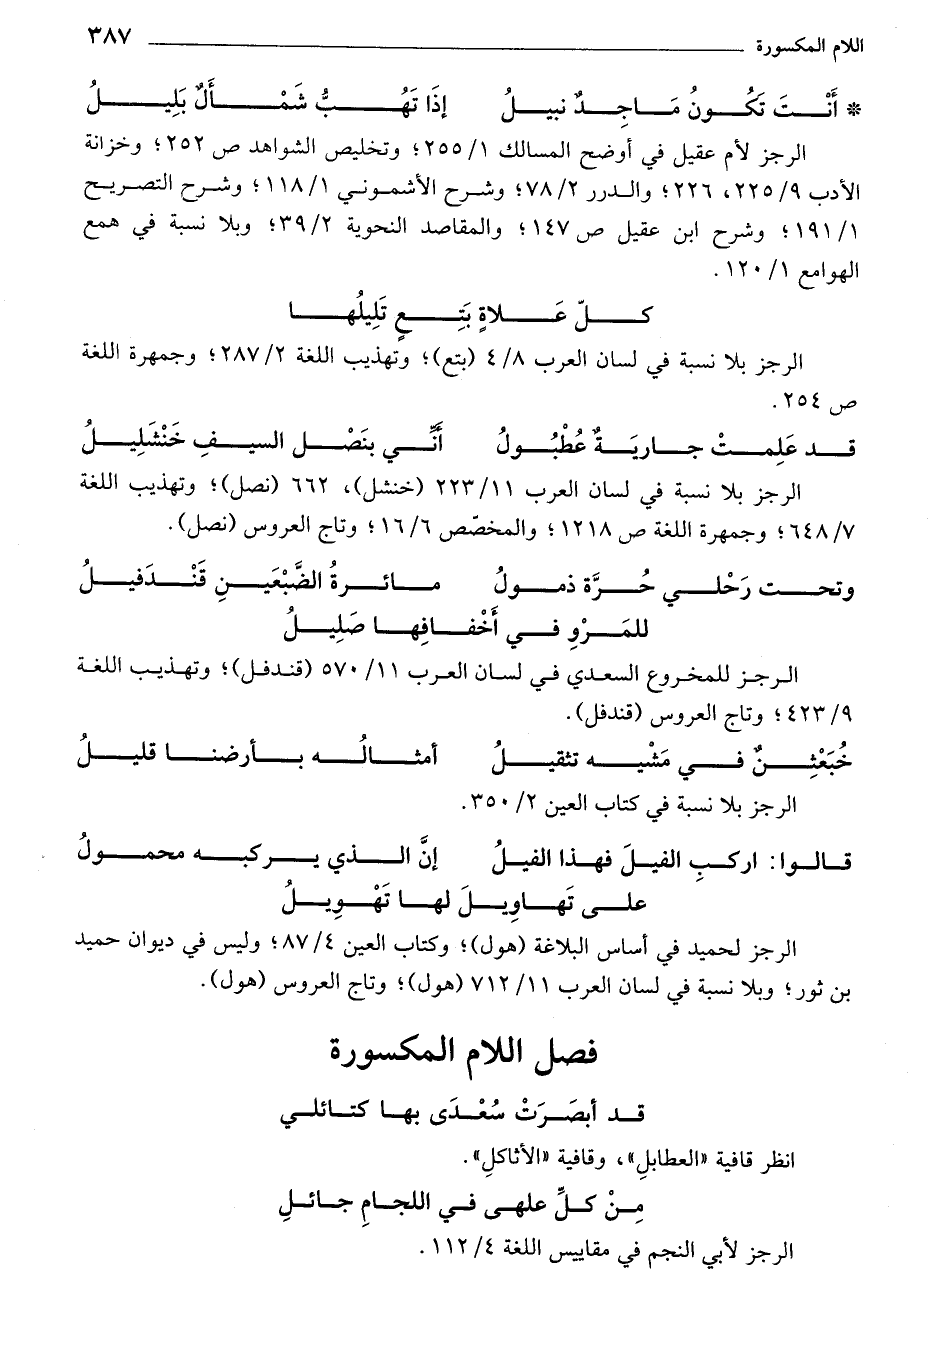 اللام المكسورة ٣٨٧
* أَنْتَ تَكُونُ مَاجِدٌ نبيلُ إذَا تَهُبُّ شَمْأَلٌ بَلِيلُ
الرجز لأم عقيل في أوضح المسالك ١/ ٢٥٥؛ وتخليص الشواهد ص ٢٥٢؛ وخزانة
الأدب ٩/ ٢٢٥، ٢٢٦؛ والدرر ٢/ ٧٨؛ وشرح الأشموني ١/ ١١٨؛ وشرح التصريح
١/ ١٩١؛ وشرح ابن عقيل ص ١٤٧؛ والمقاصد النحوية ٢/ ٣٩؛ وبلا نسبة في همع
الهوامع ١/ ١٢٠.
كلّ عَلاةٍ بَتِعٍ تَلِيلُها
الرجز بلا نسبة في لسان العرب ٨/ ٤ (بتع)؛ وتهذيب اللغة ٢/ ٢٨٧؛ وجمهرة اللغة
ص ٢٥٤.
قد عَلِمتْ جاريَةٌ عُطْبُولُ أنِّي بنَصْل السيفِ خَنْشَلِيلُ
الرجز بلا نسبة في لسان العرب ١١/ ٢٢٣ (خنشل)، ٦٦٢ (نصل)؛ وتهذيب اللغة
٧/ ٦٤٨؛ وجمهرة اللغة ص ١٢١٨؛ والمخصّص ٦/ ١٦؛ وتاج العروس (نصل).
وتحت رَحْلي حُرَّة ذمولُ مائرةُ الضَّبْعَينِ قَنْدَفيلُ
للمَرْوِ في أَخْفافِها صَلِيلُ
الرجز للمخروع السعدي في لسان العرب ١١/ ٥٧٠ (قندفل)؛ وتهذيب اللغة
٩/ ٤٢٣؛ وتاج العروس (قندفل).
خُبَعْثِنٌ في مَشْيه تثقيلُ أمثالُه بأرضنا قليلُ
الرجز بلا نسبة في كتاب العين ٢/ ٣٥٠.
قالوا: اركبِ الفيلَ فهذا الفيلُ إنَّ الذي يركبه محمولُ
على تَهاوِيلَ لها تَهْوِيلُ
الرجز لحميد في أساس البلاغة (هول)؛ وكتاب العين ٤/ ٨٧؛ وليس في ديوان حميد
بن ثور؛ وبلا نسبة في لسان العرب ١١/ ٧١٢ (هول)؛ وتاج العروس (هول).
فصل اللام المكسورة
قد أبصَرَتْ سُعْدَى بها كتائلي
انظر قافية «العطابلِ»، وقافية «الأثاكلِ».
مِنْ كلِّ علهى في اللجامِ جائلِ
الرجز لأبي النجم في مقاييس اللغة ٤/ ١١٢.